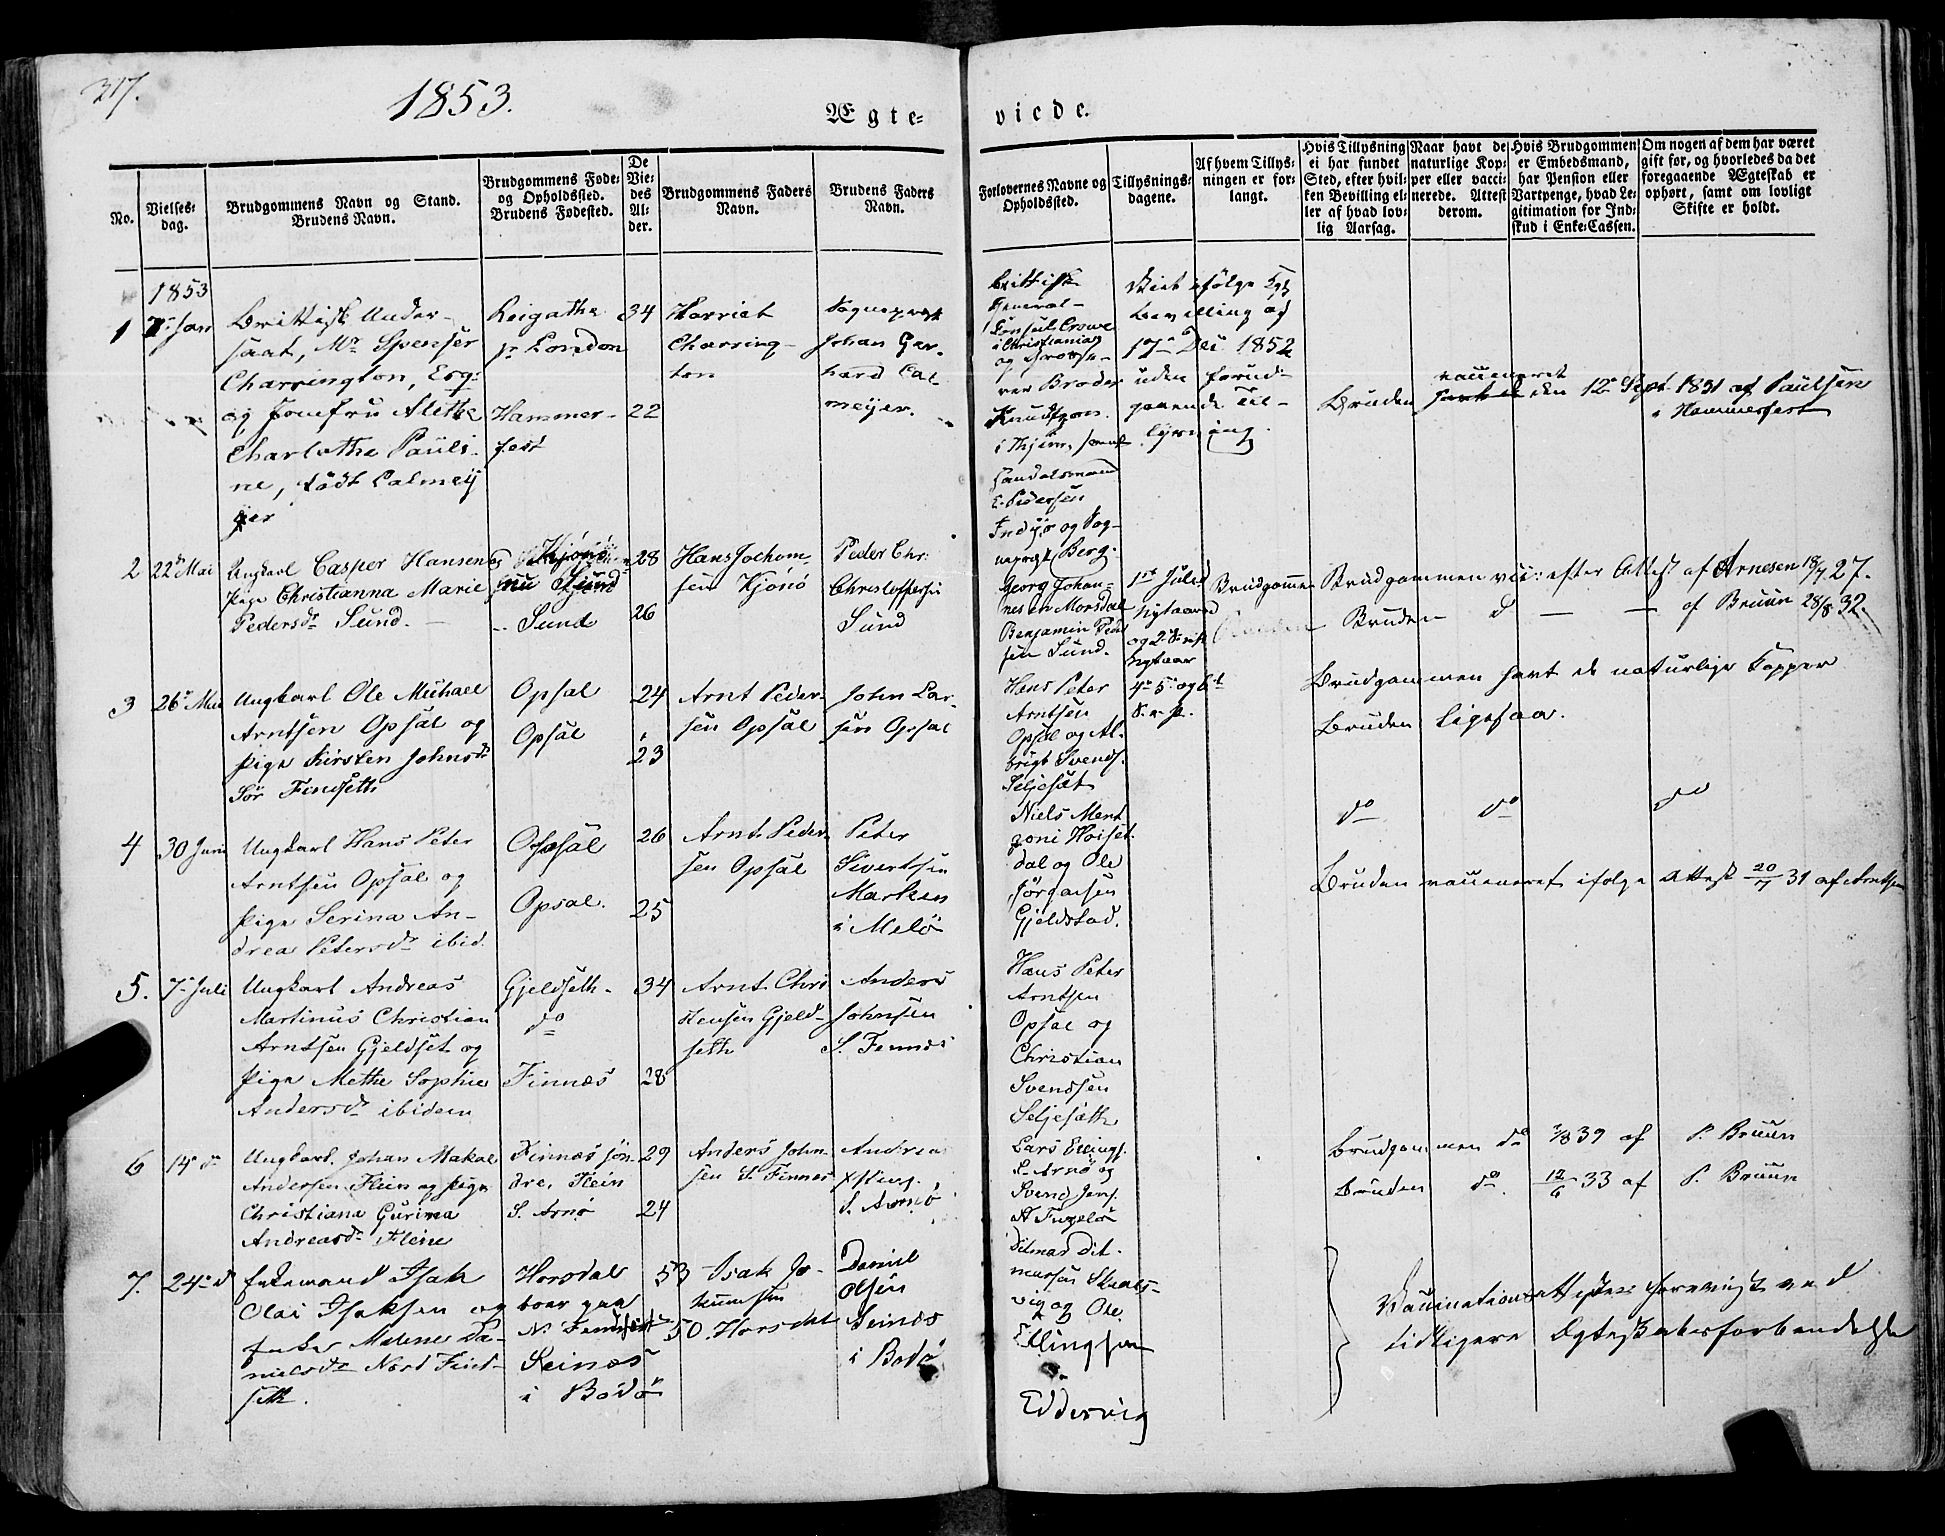 317.
1853.
Ægte-
viede.
No.
Vielses-
dag.
Brudgommens Navn og Stand.
Brudens Navn.
Brudgommens Føde-
og Opholdssted.
Brudens Fødested.
De
Vie-
des
Al-
der.
Brudgommens Faders
Navn.
Brudens Faders
Navn.
Forlovernes Navne og
Opholdssted.
Tillysnings-
dagene.
Af hvem Tillys-
ningen er for-
langt.
Hvis Tillysning
ei har fundet
Sted, efter hvil-
ken Bevilling el-
ler af hvad lov-
lig Aarsag.
Naar havt de
naturlige Kop-
per eller vacci-
nerede. Attest
derom.
Hvis Brudgommen
er Embedsmand,
har Pension eller
Vartpenge, hvad Le-
gitimation for Ind-
skud i Enke-Cassen.
Om nogen af dem har været
gift før, og hvorledes da det
foregaaende Ægteskab er
ophørt, samt om lovligt
Skifte er holdt.
1853
1
7de Jan
Brittisk Under-
saat, Mr Spenser
Charrington, Esq:
og Jomfru Alethe
Charlothe Pauli-
ne, født Calmeij
jer
Reigathe
pr London
Hammer-
fest
34
22
Harriet
Charring-
ton
Sognepræst
Johan Ger-
hard Cal-
meijer.
Brittisk
General-
Consul Crowe
i Christiania
og Grosse-
rer Broder
Knudtzon.
i Thjem, samt
Handelsmand
E. Pedersen
Indyr og Sog-
nepræst Berg.
Viet ifølge Kgl
Bevilling af
17de Dec 1852
uden forud-
gaaende Til-
lysning.
Bruden
vaccineret
den 12te Sept. 1831 af Paulsen
i Hammerfest
2
22de Mai
Ungkarl Casper Hansen
Pige Christianna Marie
Pedersdr Sund. —
Kjønø
Sund
28
26
Hans Jochom-
sen Kjønø
Peder Chr:
Christoffersen
Sund
Georg Johan-
nesen Morsdal
Benjamin Pedr
sen Sund.
1ste Juled
Nytaarsd
og 2 S. e.
Nytaar
Brudgommen
Brudgommen vac: efter Attest af Arnesen 18/7 27.
Bruden d — — af Bruun 28/8 32.
3
26de Mai
Ungkarl Ole Michael
Arntsen Opsal og
Pige Kirsten Johnsdr
Sør Findseth
Opsal
Opsal
24
23
Arnt Peder-
sen Opsal
John Lar-
sen Opsal
Hans Peter
Arntsen
Opsal og Al-
brigt Svends.
Seljesæt
4de 5te og 6te
S. e. p.
Brudgommen havt de naturlige Kopper
Bruden ligesaa.
4
30 Juni
Ungkarl Hans Peter
Arntsen Opsal og
Pige Serina An-
drea Petersdr ibid.
Opsal
Opsal.
26
25
Arnt Peder
sen Opsal
Peter
Sivertsen
Marken
i Melø
Niels Ment
zoni Høiset
dal og Ole
Jørgensen
Gjeldstad.
do
do
do
Bruden vaccineret ifølge Attest 20/7 31 af Arntsen
5.
7de Juli
Ungkarl Andreas
Martinus Christian
Arntsen Gjeldset og
Pige Methe Sophie
Andersdr ibidem
Gjeldseth.
do
Finnæs
34
28
Arnt Chri
stensen Gjeld-
seth
Anders
Johnsen
S. Finnæs
Hans Peter
Arntsen
Opsal og
Christian
Svendsen
Seljesæth
6
14de do
Ungkarl Johan Makal
Andersen Flein og Pige
Christiana Gurina
Andreasdr Fleine
Finnæs søn-
dre, Flein
S. Arnø
29
24
Anders John-
sen S. Finnæs
Andreas
S. Arnø
Lars Ellings.
S. Arnø og
Svend Jens.
N Fugelø
Brudgommen do 7/8 39 af P. Bruun
Bruden do. 12/6 33 af P. Bruun
7.
24de d
Enkemand Isak
Olai Isaksen og
Enke Malene Da-
nielsdr Nord Find-
seth.
Horsdal
boer paa
N. Findseth
Seines
i Bodø
53
50
Isak Jo-
Horsdal
Daniel
Olsen
Seines
i Bodø
Ditmar Dit-
marsen Skaals-
vig og Ole
Ellingsen
Eddervig
Vaccinationsattester foreviist ved
tidligere Ægteskabsforbindelse